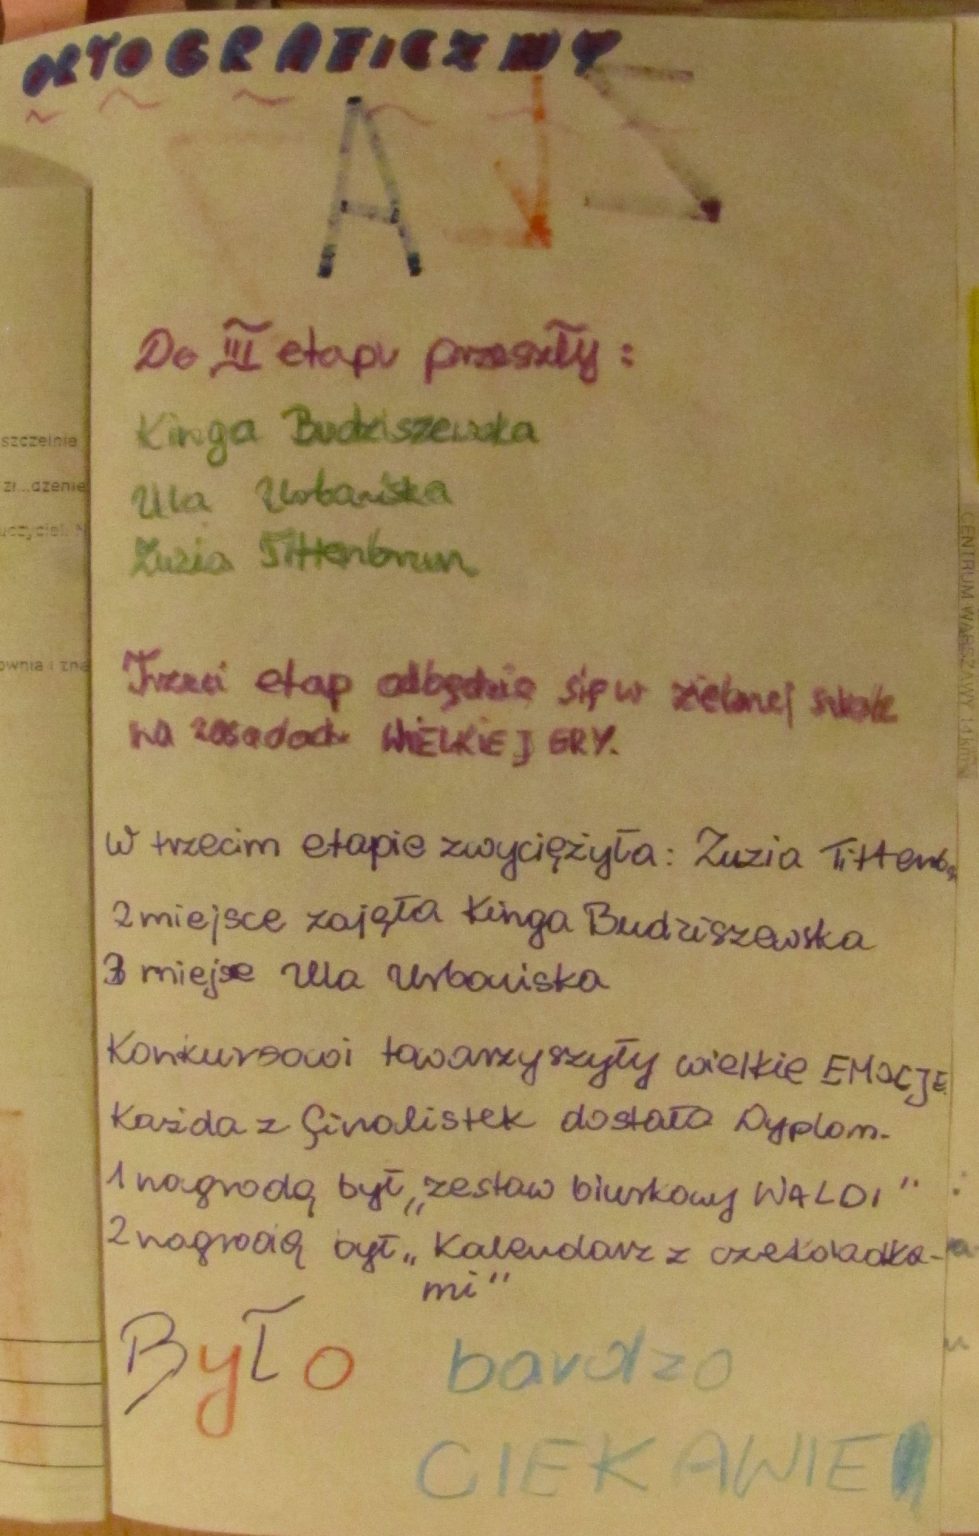 ORTOGRAFICZNY
A
Do III etapu przeszły:
Kinga Budziszewska
Ula Urbańska
Zuzia Tittenbrun
Trzeci etap odbędzie się w zielonej szkole
na zasadach WIELKIEJ GRY.
W trzecim etapie zwyciężyła: Zuzia Tittenb
2 miejsce zajęła Kinga Budziszewska
3 miejsce Ula Urbańska
Konkursowi towarzyszyły wielkie EMOCJE
Każda z finalistek dostała Dyplom.
1 nagrodą był „zestaw biurkowy WALDI"
2 nagrodą był „Kalendarz z czekoladka-
mi"
Było bardzo
CIEKAWIE
szczelnie
ownia i zna
CENTRUM WARSZAWY